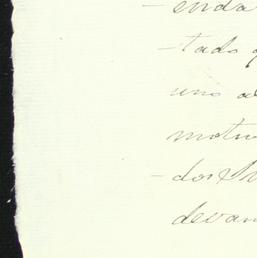 - enda
- tado
uno a
motiv
- dos Sr
devan